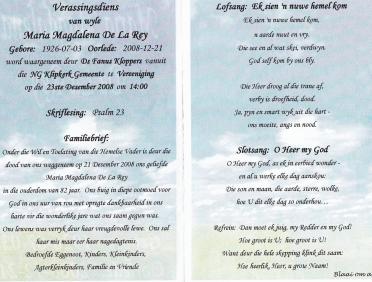 Verassingsdiens
van wyle
Maria Magdalena De La Rey
Gebore: 1926-07-03 Oorlede: 2008-12-21
word waargeneem deur Ds Fanus Kloppers vanuit
die NG Klipkerk Gemeente te Vereeniging
op die 23ste Desember 2008 om 14:00
Skriflesing: Psalm 23
Familiebrief:
Onder die Wil en Toelating van die Hemelse Vader is deur die
dood van ons weggeneem op 21 Desember 2008 ons geliefde
Maria Magdalena De La Rey
in die ouderdom van 82 jaar. Ons buig in diepe ootmoed voor
God in ons uur van rou met opregte dankbaarheid in ons
harte vir die wonderlike jare wat ons saam gegun was.
Ons lewens was verryk deur haar vreugdevolle lewe. Ons sal
haar mis maar eer haar nagedagtenis.
Bedroefde Eggenoot, Kinders, Kleinkinders,
Agterkleinkinders, Familie en Vriende
Lofsang: Ek sien 'n nuwe hemel kom
Ek sien 'n nuwe hemel kom,
'n aarde nuut en vry.
Die see en al wat skei, verdwyn.
God self kom by ons bly.
Die Heer droog al die trane af,
verby is droefheid, dood.
Ja, pyn en smart wyk uit die hart -
ons moeite, angs en nood.
Slotsang: O Heer my God
O Heer my God, as ek in eerbied wonder -
en al u werke elke dag aanskou:
Die son en maan, die aarde, sterre, wolke,
hoe U dit elke dag so onderhou…
Refrein: Dan moet ek juig, my Redder en my God!
Hoe groot is U; hoe groot is U!
Want deur die hele skepping klink dit saam:
Hoe heerlik, Heer, u grote Naam!
Blaai om a